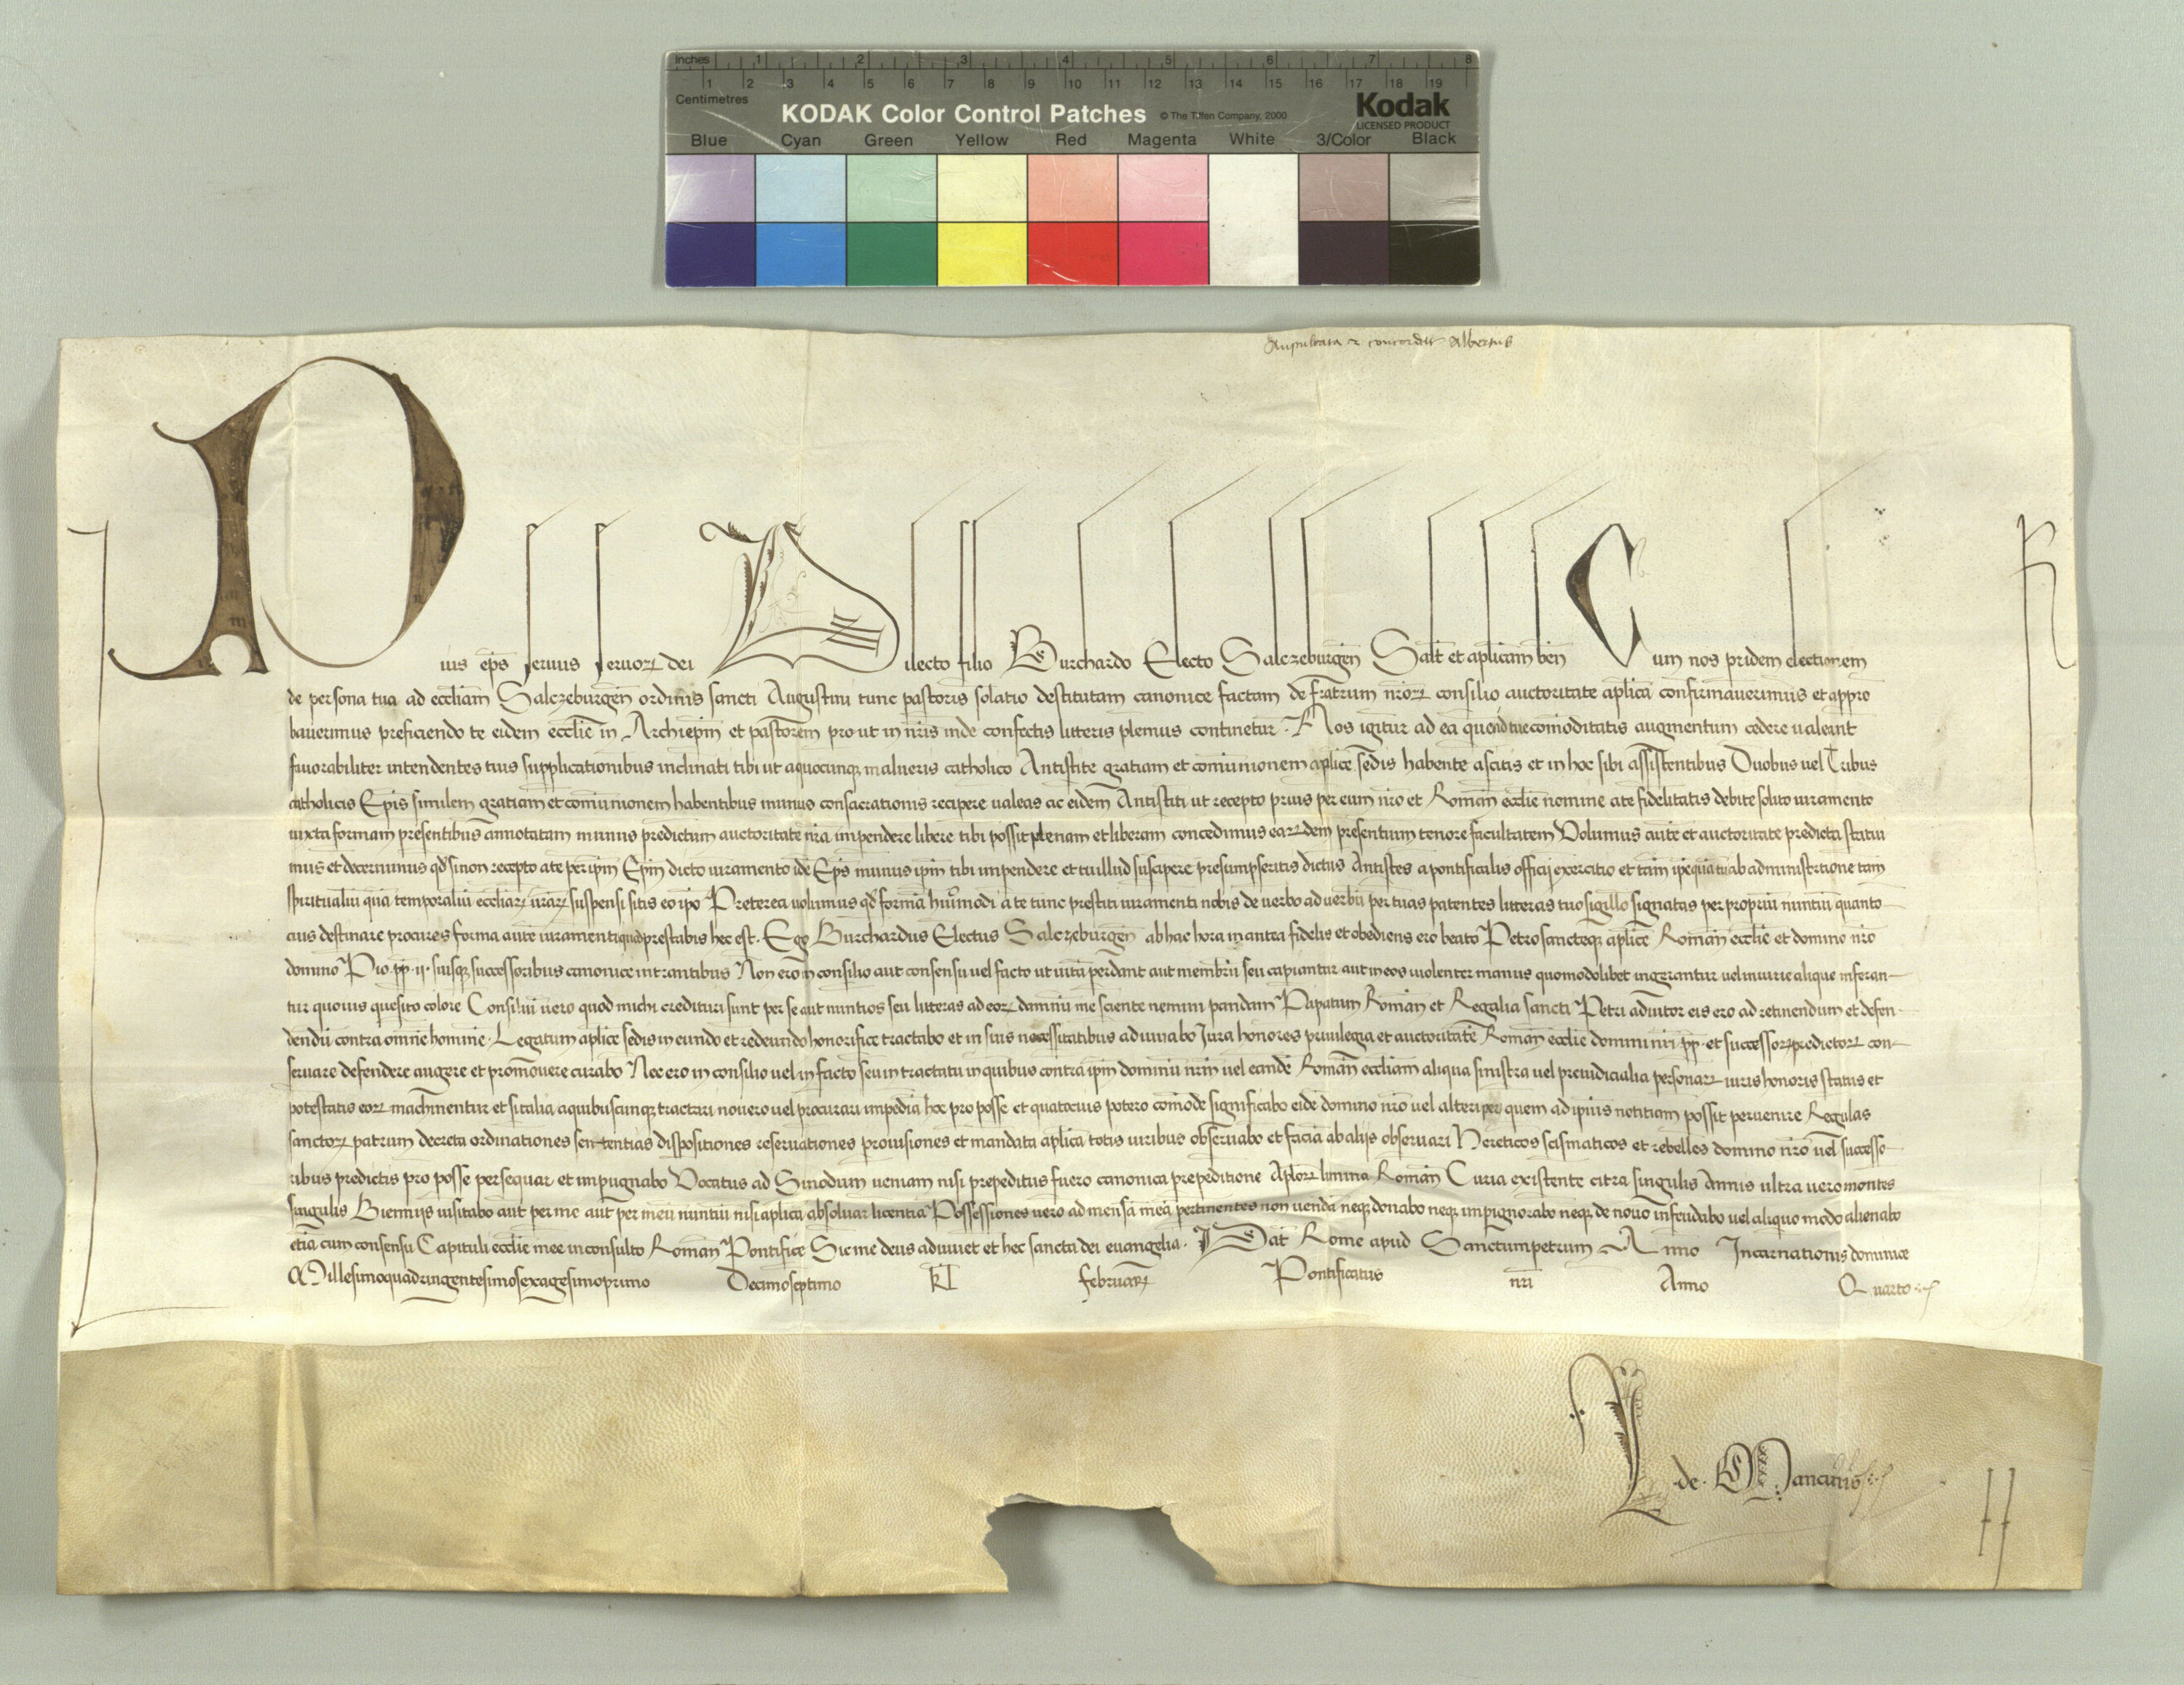 Inches 1 2 3 4 5 6 7 8
1 2 3 4 5 6 7 8 9 10 11 12 13 14 15 16 17 18 19
Centimetres
KODAK Color Control Patches © The Tiffen Company, 2000 Kodak
LICENSED PRODUCT
Blue Cyan Green Yellow Red Magenta White 3/Color Black
Auscultata et concordat Albertus
Pius ep̄s servus servoꝝ dei Dilecto filio Burchardo Electo Salczeburgeñ Salt̄ et apl̄icam beñ Cum nos pridem electionem
de persona tua ad eccl̄iam Salczeburgeñ ordinis sancti Augustini tunc pastoris solatio destitutam canonice factam de fratrum nr̄oꝝ consilio auctoritate apl̄ica confirmaverimus et appro
baverimus preficiendo te eidem eccl̄ie in Archiep̄m et pastorem prout in nr̄is inde confectis litteris plenius continetur. Nos igitur ad ea que in tue comoditatis augmentum cedere valeant
favorabiliter intendentes tuis supplicationibus inclinati tibi ut a quocunqꝫ malueris catholico Antistite gratiam et comunionem apl̄ice sedis habente ascitis et in hoc sibi assistentibus Duobus vel Tribus
catholicis Ep̄is similem gratiam et comunionem habentibus munus consacrationis recipere valeas ac eidem Antistiti ut recepto prius per eum nr̄o et Romañ eccl̄ie nomine a te fidelitatis debite solito iuramento
iuxta formam presentibus annotatam munus predictum auctoritate nr̄a impendere libere tibi possit plenam et liberam concedimus earꝝdem presentium tenore facultatem Volumus aūte et auctoritate predicta statui
mus et decernimus qd̄ si non recepto a te per ip̄m Ep̄m dicto iuramento idē Ep̄s munus ip̄m tibi impendere et tu illud suscipere presumpseritis dictus Antistes a pontificalis officij exercitio et tam ip̄e quā tu ab administratione tam
spiritualiū quā temporaliū eccl̄iaꝝ vr̄aꝝ suspensi sitis eo ip̄o Preterea volumus qd̄ formā huiͥmodi a te tunc prestiti iuramenti nobis de verbo ad verbū per tuas patentes litteras tuo sigillo signatas per propriū nuntiū quanto
cius destinare procures forma aūte iuramenti quod prestabis hec est. Ego Burchardus Electus Salczeburgeñ ab hac hora in antea fidelis et obediens ero beato Petro sancteqꝫ apl̄ice Romañ eccl̄ie et domino nr̄o
domino Pio pp̄ ii. suisqꝫ successoribus canonice intrantibus Non ero in consilio aut consensu vel facto ut vitā perdant aut membrū seu capiantur aut in eos violenter manus quomodolibet ingerantur vel iniurie alique inferan
tur quovis quesito colore Consiliū vero quod michi credituri sunt per se aut nuntios seu litteras ad eoꝝ damnū me sciente nemini pandam Papatum Romañ et Regalia sancti Petri adiutor eis ero ad retinendum et defen
dendū contra omnē hominē. Legatum apl̄ice sedis in eundo et redeundo honorifice tractabo et in suis necessitatibus adiuvabo Iura honores privilegia et auctoritatē Romañ eccl̄ie domini nr̄i pp̄. et successoꝝ predictoꝝ con
servare defendere augere et promovere curabo Nec ero in consilio vel in facto seu in tractatu in quibus contra ip̄m dominū nr̄m vel eandē Romañ eccl̄iam aliqua sinistra vel preiudicialia personaꝝ iuris honoris status et
potestatis eoꝝ machinentur et si talia a quibuscunqꝫ tractari novero vel procurari impediā hoc pro posse et quatocius potero comode significabo eidē domino nr̄o vel alteri per quem ad ip̄ius notitiam possit pervenire Regulas
sanctoꝝ patrum decreta ordinationes sententias dispositiones reservationes provisiones et mandata apl̄ica totis viribus observabo et faciā ab alijs observari Hereticos scismaticos et rebelles domino nr̄o vel successo
ribus predictis pro posse persequar et impugnabo Vocatus ad Sinodum veniam nisi prepeditus fuero canonica prepeditione Apl̄oꝝ limina Romañ Curia existente citra singulis Annis ultra vero montes
singulis Bienniis visitabo aut per me aut per meū nuntiū nisi apl̄ica absolvar licentia Possessiones vero ad mensā meā pertinentes non vendā neqꝫ donabo neqꝫ impignorabo neqꝫ de novo infeudabo vel aliquo modo alienabo
etiā cum consensu Capituli eccl̄ie mee inconsulto Romañ Pontifice Sic me deus adiuvet et hec sancta dei evangelia. Dat̄ Rome apud Sanctumpetrum Anno Incarnationis dominice
Millesimoquadringentesimosexagesimoprimo Decimoseptimo kl̄ februaꝝ Pontificatus nr̄i Anno Quarto
L. de Mancinis